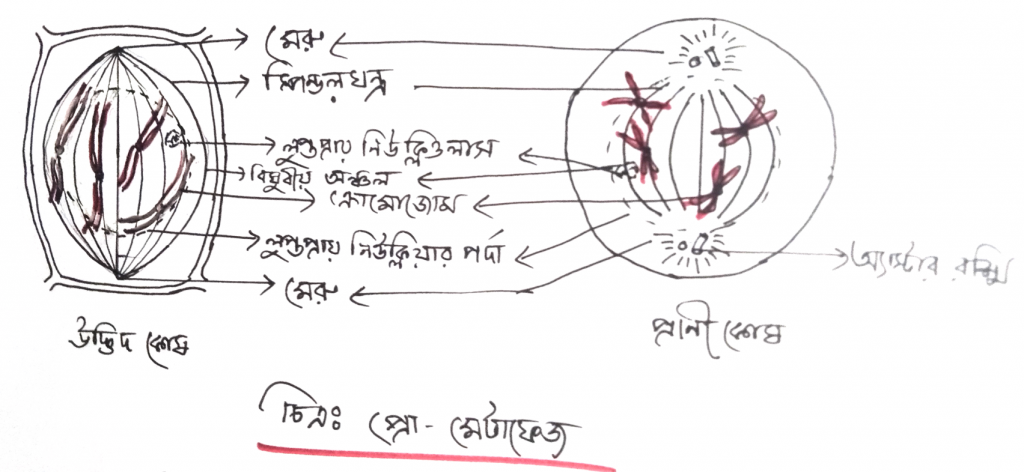 মেরু
স্পিন্ডলযন্ত্র
লুপ্তপ্রায় নিউক্লিওলাস
বিষুবীয় অঞ্চল
ক্রোমোজোম
লুপ্তপ্রায় নিউক্লিয়ার পর্দা
অ্যাস্টার রশ্মি
মেরু
উদ্ভিদ কোষ
প্রানী কোষ
চিত্রঃ প্রো - মেটাফেজ